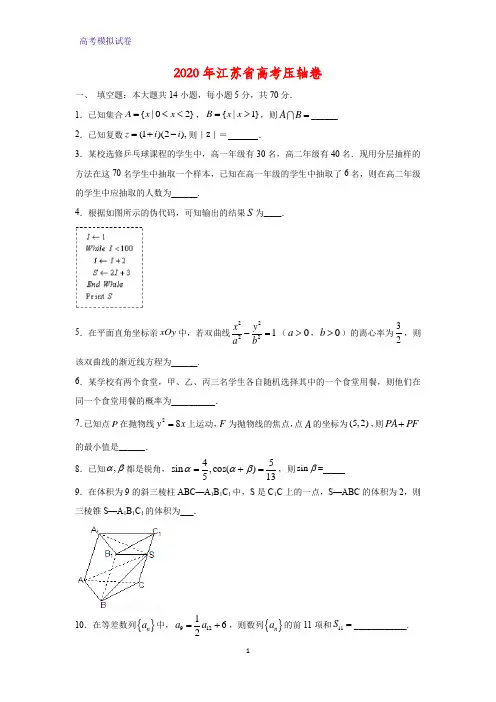 高考模拟试卷
2020年江苏省高考压轴卷
一、 填空题:本大题共14小题,每小题5分,共70分.
1.已知集合A={x|0<x<2},B={x|x>1},则A⋂B=______
2.已知复数z=(1+i)(2−i),则|z|=_______.
3.某校选修乒乓球课程的学生中,高一年级有30名,高二年级有40名.现用分层抽样的
方法在这70名学生中抽取一个样本,已知在高一年级的学生中抽取了6名,则在高二年级
的学生中应抽取的人数为______.
4.根据如图所示的伪代码,可知输出的结果S为____.
I←1
While I<100
I←I+2
S←2I+3
End While
Print S
5.在平面直角坐标亲xOy中,若双曲线x²/a²−y²/b²=1(a>0,b>0)的离心率为3/2,则
该双曲线的渐近线方程为______.
6.某学校有两个食堂,甲、乙、丙三名学生各自随机选择其中的一个食堂用餐,则他们在
同一个食堂用餐的概率为__________.
7.已知点P在抛物线y²=8x上运动,F为抛物线的焦点,点A的坐标为(5,2),则PA+PF
的最小值是______.
8.已知α,β都是锐角,sinα=4/5,cos(α+β)=5/13,则sinβ=_____
9.在体积为9的斜三棱柱ABC—A₁B₁C₁中,S是C₁C上的一点,S—ABC的体积为2,则三
棱锥S—A₁B₁C₁的体积为___.
A₁ C₁
B₁ S
A C
B
10.在等差数列{aₙ}中,a₉=1/2a₁₂+6,则数列{aₙ}的前11项和S₁₁=____________.
1